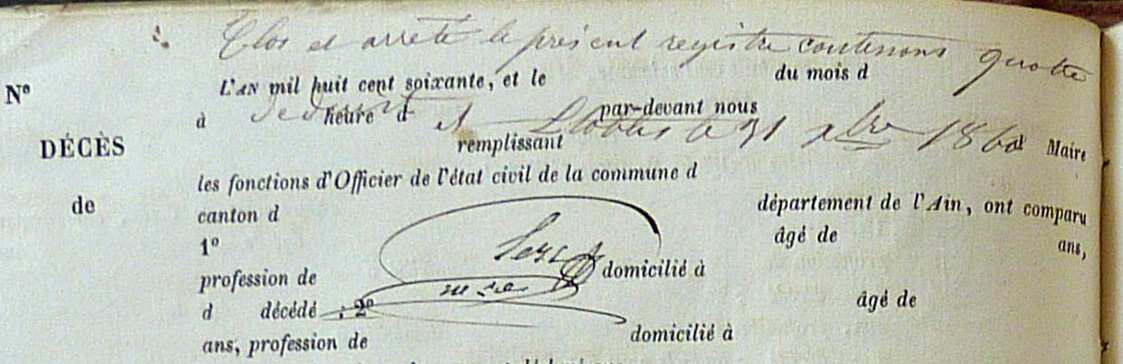 Clos et arrêté le présent registre contenons quatre
Nº
L'AN mil huit cent soixante, et le du mois d
à heure d par-devant nous
et le 31 xbre 1860
DÉCÈS
remplissant d Maire
de
les fonctions d'Officier de l'état civil de la commune d
canton d département de l'Ain, ont comparu
1º âgé de ans,
profession de domicilié à
mre
d décédé ; 2º âgé de
ans, profession de domicilié à